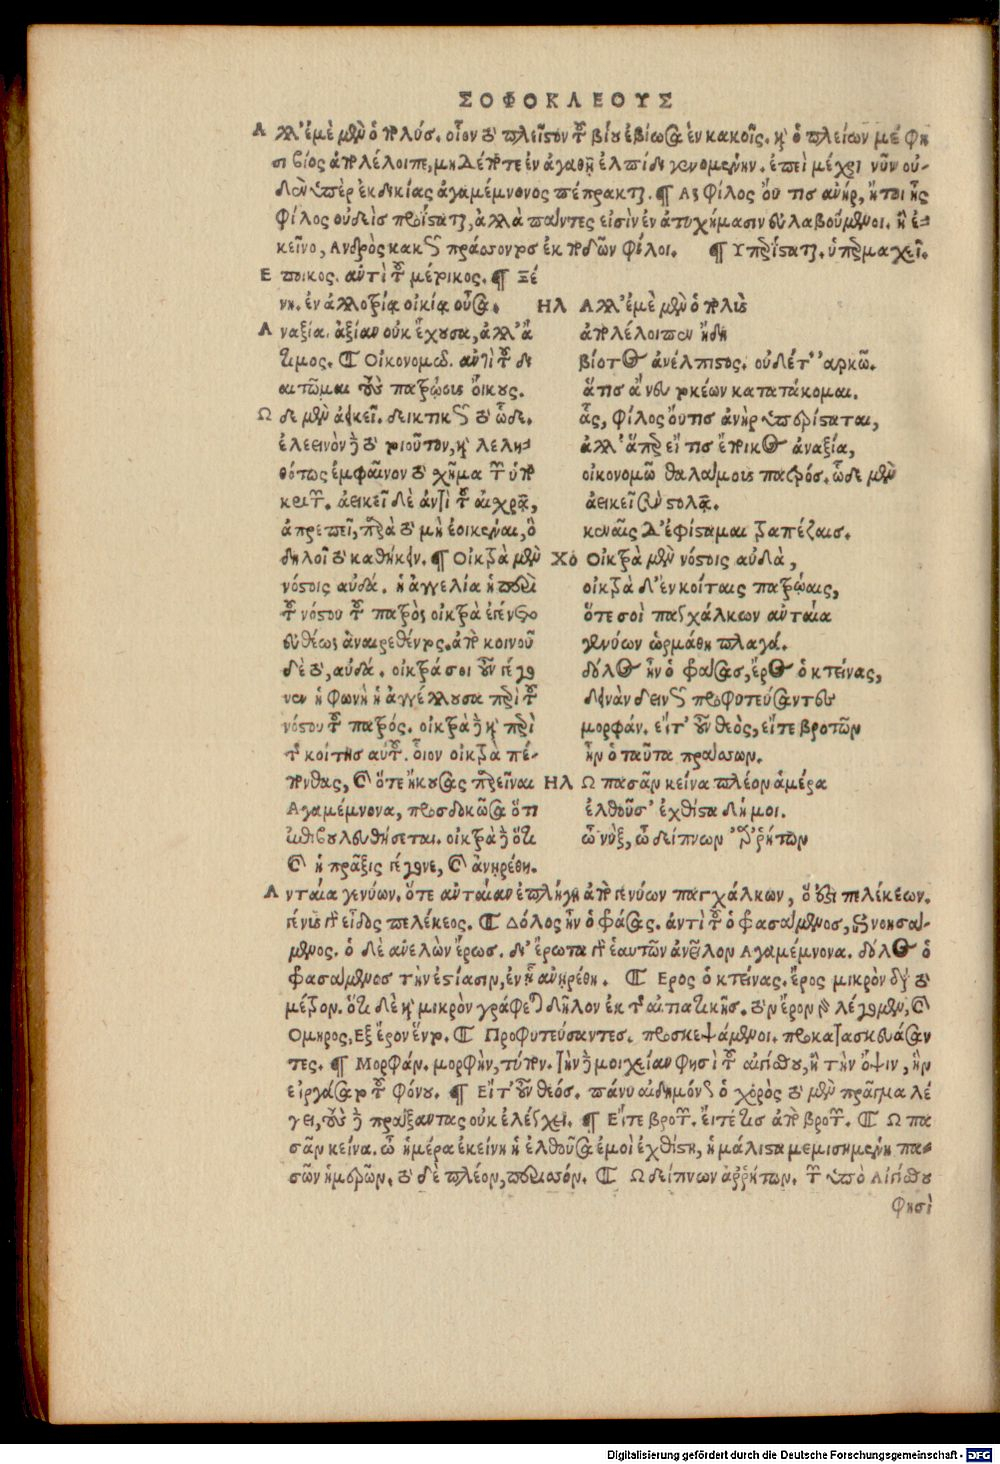 ΣΟΦΟΚΛΕΟΥΣ
Αλλ' ἐμὲ μὲν ὁ πολύσ. οἷον τὸ πλεῖστον τοῦ βίου ἐβίωσα ἐν κακοῖς. καὶ ὁ πλείων μέ φη
σι βίος ἀπολέλοιπε, μηδέποτε ἐν ἀγαθῇ ἐλπίδι γενομένην. ἐπεὶ μέχρι νῦν οὐ-
δὲν ὑπὲρ ἐκδικίας ἀγαμέμνονος πέπρακται. ¶ Ας φίλος οὔ τισ ἀνήρ, ἤτοι ἧς
φίλος οὐδεὶσ προΐσταται, ἀλλὰ πάντες εἰσὶν ἐν ἀτυχήμασιν εὐλαβούμενοι. ἢ ἐ-
κεῖνο, Ανδρὸς κακῶς πράσσοντοσ ἐκποδὼν φίλοι. ¶ Υπερίσταται. ὑπερμαχεῖ.
Εποικος. ἀντὶ τοῦ μέτοικος. ¶ Ξέ
νη. ἐν ἀλλοτρίᾳ οἰκίᾳ οὖσα.
Αναξία. ἀξίαν οὐκ ἔχουσα, ἀλλ' ἄ
τιμος. ¶ Οἰκονομῶ. ἀντὶ τοῦ δι
αιτῶμαι τοὺς πατρῴουσ οἴκους.
Ωδε μὲν ἀεικεῖ. δεικτικῶς τὸ ὧδε.
ἐλεεινὸν γὰρ τὸ τοιοῦτον, καὶ λελη-
θότως ἐμφαῖνον τὸ χῆμα τῶν ὑπο
κριτῶν. ἀεικεῖ δὲ ἀντὶ τοῦ αἰχρᾷ,
ἀπρεπεῖ, παρὰ τὸ μὴ ἐοικέναι, ὃ
δηλοῖ τὸ καθήκειν. ¶ Οἰκτρὰ μὲν
νόστοις αὐδά. ἡ ἀγγελία ἡ περὶ
τοῦ νόστου τοῦ πατρὸς οἰκτρὰ ἐγένετο
εὐθέως ἀναιρεθέντος. ἀπὸ κοινοῦ
δὲ τὸ, αὐδά. οἰκτρά σοι οὖν γέγο
νεν ἡ φωνὴ ἡ ἀγγέλλουσα περὶ τοῦ
νόστου τοῦ πατρός. οἰκτρὰ γὰρ καὶ περὶ
τῆς κοίτησ αὐτοῦ. οἷον οἰκτρὰ πέ-
πονθας, καὶ ὅτε ἤκουσας παρεῖναι
Αγαμέμνονα, προσδοκῶσα ὅτι
ἐπιβουλευθήσεται. οἰκτρὰ γὰρ ὅτι
καὶ ἡ πρᾶξις γέγονε, καὶ ἀνῃρέθη.
ΗΛ Αλλ' ἐμὲ μὲν ὁ πολὺσ
ἀπολέλοιπεν ἤδη
βίοτος ἀνέλπιστος. οὐδέτ' ἀρκῶ.
ἅτισ ἄνευ τοκέων κατατάκομαι.
ἇς, φίλος οὔτισ ἀνὴρ ὑπερίσταται,
ἀλλ' ἅπερ εἴ τισ ἔποικος ἀναξία,
οἰκονομῶ θαλάμουσ πατρός. ὧδε μὲν
ἀεικεῖ σὺν στολᾷ.
κεναῖς δ' ἐφίσταμαι τραπέζαισ.
Χό Οἰκτρὰ μὲν νόστοις αὐδὰ,
οἰκτρὰ δ' ἐν κοίταις πατρῴαις,
ὅτε σοὶ παγχάλκων ἀνταία
γενύων ὡρμάθη πλαγά.
δόλος ἦν ὁ φράσας, ἔρος ὁ κτείνας,
δεινὰν δεινῶς προφυτεύσαντεσ
μορφάν. εἴτ' οὖν θεὸς, εἴτε βροτῶν
ἦν ὁ ταῦτα πράσσων.
ΗΛ Ω πασᾶν κείνα πλέον ἁμέρα
ἐλθοῦσ' ἐχθίστα δή μοι.
ὦ νὺξ, ὦ δείπνων ἀῤῥήτων
Ανταία γενύων. ὅτε ἀνταίαν ἐπλήγη ἀπὸ γενύων παγχάλκων, ὅ ἐστι πελέκεων.
γένυς γὰρ εἶδος πελέκεος. ¶ Δόλος ἦν ὁ φράσας. ἀντὶ τοῦ ὁ φρασάμενοσ, καὶ νοησά-
μενος. ὁ δὲ ἀνελὼν ἔρωσ. δι' ἔρωτα γὰρ ἑαυτῶν ἀνεῖλον Αγαμέμνονα. δόλος ὁ
φρασάμενοσ τὴν ἑστίασιν, ἐν ᾗ ἀνῃρέθη. ¶ Ερος ὁ κτείνας. ἔρος μικρὸν διὰ τὸ
μέτρον. ὅτι δὲ καὶ μικρὸν γράφεται δῆλον ἐκ τῆς αἰτιατικῆς. τὸν ἔρον γὰρ λέγομεν, καὶ
Ομηρος, Εξ ἔρον ἕντο. ¶ Προφυτεύσαντες. προσκεψάμενοι. προκατασκευάσαν
τες. ¶ Μορφάν. μορφὴν, τύπον. τὴν γὰρ μοιχείαν φησὶ τοῦ αἰγίσθου, ἢ τὴν ὄψιν, ἣν
εἰργάσατο τοῦ φόνου. ¶ Εἴτ' οὖν θεόσ. πάνυ αἰδημόνως ὁ χορὸς τὸ μὲν πρᾶγμα λέ
γει, τοὺς γὰρ πράξαντας οὐκ ἐλέγχει. ¶ Εἴτε βροτῶν. εἴτέ τισ ἀπὸ βροτῶν. ¶ Ω πα
σᾶν κείνα. ὦ ἡμέρα ἐκείνη ἡ ἐλθοῦσα ἐμοὶ ἐχθίστη, ἡ μάλιστα μεμισημένη πα-
σῶν ἡμερῶν. τὸ δὲ πλέον, περισσόν. ¶ Ω δείπνων ἀῤῥήτων. τῶν ὑπὸ Αἰγίσθου
φησὶ
Digitalisierung gefördert durch die Deutsche Forschungsgemeinschaft - DFG